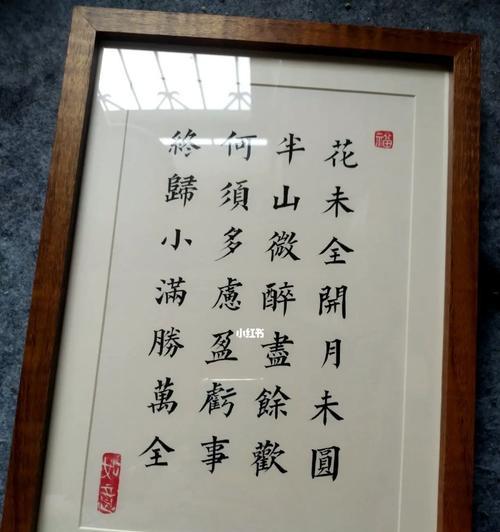 福
花未全開月未圓
半山微醉盡餘歡
何須多慮盈虧事
終歸小滿勝萬全
如意
小红书